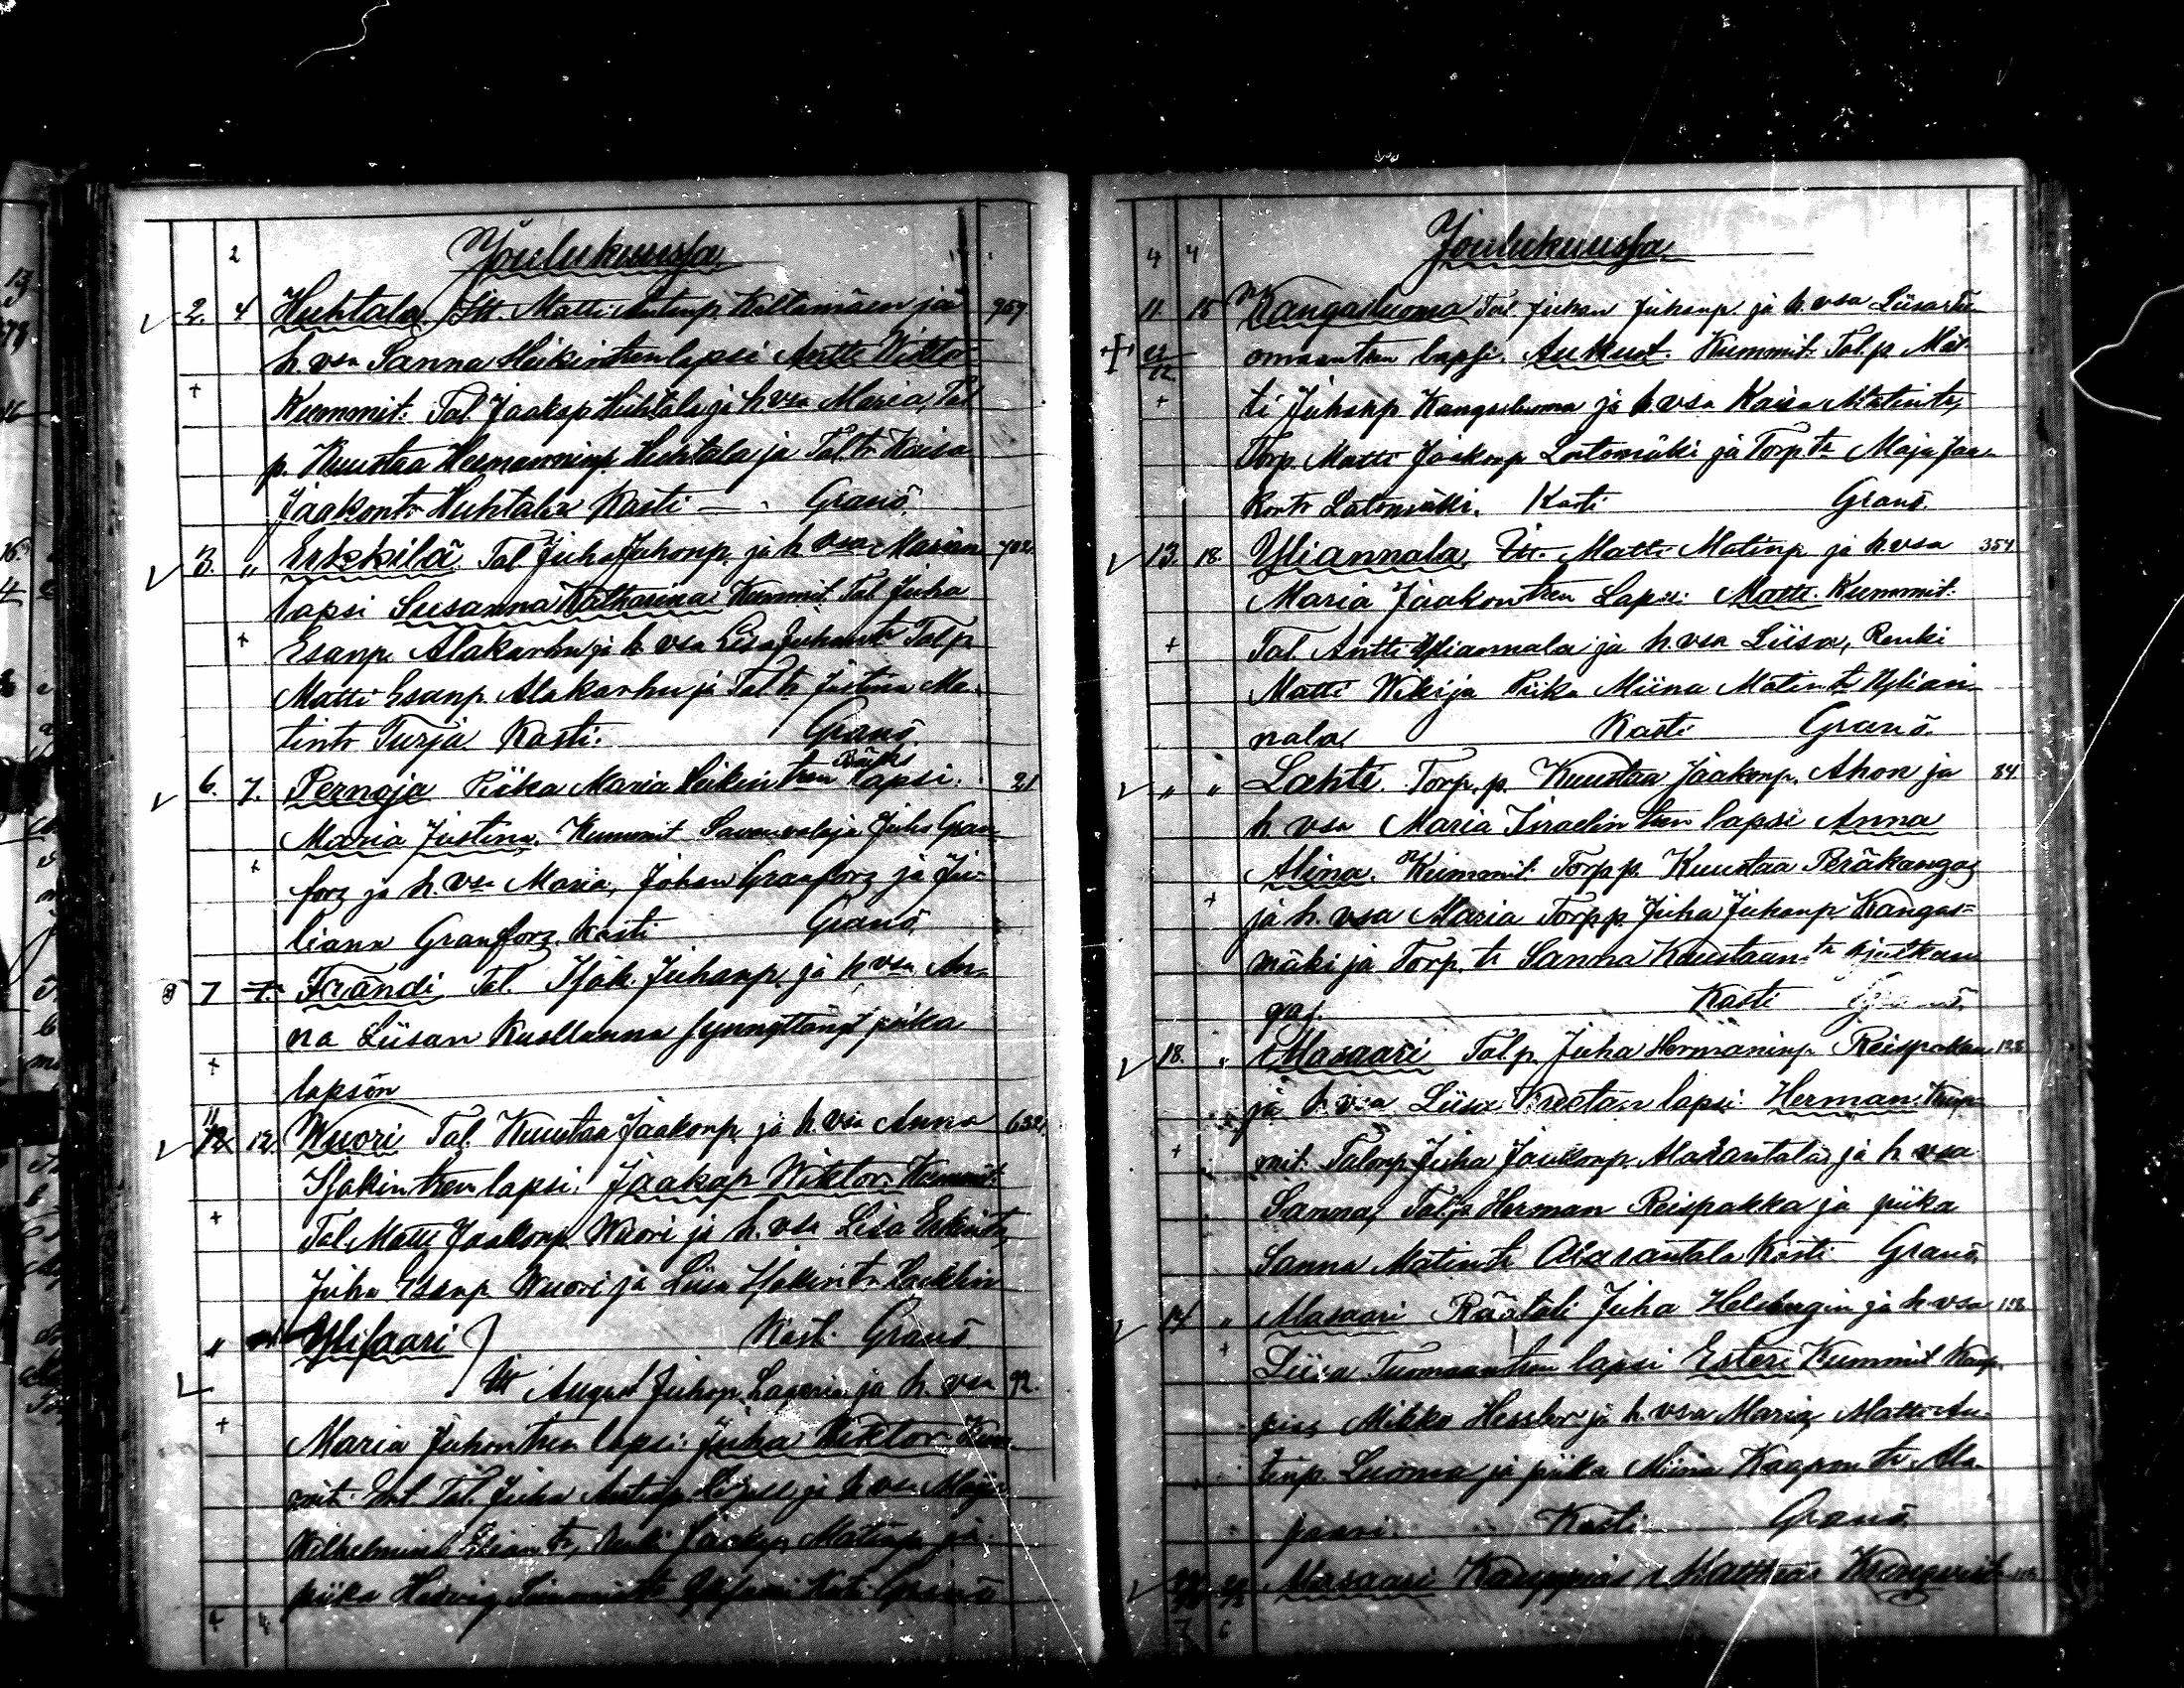 2 Joulukuussa
2. 4 Huhtala. Itt. Matti Antinp. Kiltamäen ja 959
h. vsa Sanna Heikintren lapsi Antti Wiktor
Kummit: Tal. Jaakop Huhtala ja h. vsa Maria, Tal
p. Kuustaa Hermanninp. Huhtala ja Tal. tr Kaisa
Jaakontr Huhtala Kasti — Granö.
3. " Erkkilä. Tal. Juha Juhonp. ja h. vsa Marian
lapsi Susanna Katharina Kummit. Tal. Juha
Esanp. Alakarhu ja h. vsa Lisa Juhontr Tal p.
Matti Esanp. Alakarhu ja Tal tr Justina Ma-
tintr Turja. Kasti. Granö.
6. 7. Pernaja Piika Maria Heikintren lapsi. 21
Maria Justina. Kummit Savenvalaja Juho Gran-
forz ja h. vsa Maria, Johan Granforz ja Ju-
liana Granforz. Kasti Granö.
7 7. Frändi Tal. Isak. Juhanp. ja h vsa An-
na Liisan Kuollunna synnyttänyt piika
lapsen
11
12. 12. Wuori Tal. Kuustaa Jaakonp. ja h. vsa Anna 632.
Isakintren lapsi. Jaakop Wiktor. Kummit:
Tal. Matti Jaakonp. Wuori ja h. vsa Lisa Erkintr,
Juha Esanp Wuori ja Liisa Isakintr
" Ylisaari Kast. Granö.
Itt August Juhonp. ja h. vsa 92.
Maria Juhontren lapsi: Juha Wiktor Kum-
mit. Tal. Juha Antinp. ja h. vsa Maja
Wilhelmina Jaakop Matinp. ja
piika Hedvig Ylisaari Kasti Granö
4 4 Joulukuussa.
11. 15 Kangasluoma Tal. Juhan Juhanp. ja h. vsa Liisa Tu-
omaantren lapsi. Aukust. Kummit: Tal. p. Mat-
ti Juhanp Kangasluoma ja h vsa Kaisa Matintr,
Torp. Matti Jaakonp Latomäki ja Torp tr Maja Jaa-
kontr Latomäki. Kasti Granö.
13. 18. Yliannala. Itt. Matti Matinp. ja h. vsa 354
Maria Jaakontren Lapsi: Matti. Kummit:
Tal. Antti Yliannala ja h. vsa Liisa, Renki
Matti Wiki ja Piika Miina Matintr Ylian-
nala Kasti Granö.
" " Lahti. Torp. p. Kuustaa Jaakonp. Ahon ja 84.
h vsa Maria Israelintren lapsi Anna
Alina. Kummit: Torp p. Kuustaa Peräkangas
ja h. vsa Maria Torp p. Juha Juhanp Kangas=
mäki ja Torp. tr Sanna Kuustaantr
gas. Kasti Granö.
18. " Masaari Tal p. Juha Hermaninp. Reispakka 128
ja h. vsa Liisa Kreetan lapsi Herman. Kum-
mit. Talonp. Juha Jaakonp. Alarantala ja h vsa
Sanna, Tal. p. Herman Reispakka ja piika
Sanna Matintr Alarantala Kasti Granö.
14 " Masaari Räätäli Juha Helsingin ja h. vsa 128
Liisa Tuomaantren lapsi Esteri Kummit Kaup-
pias Mikko Hessler ja h. vsa Maria, Matti An-
tinp. Luoma ja piika Miina Kaapontr Ala-
paavi. Kasti Granö.
Masaari Kauppias Matthias
7 6